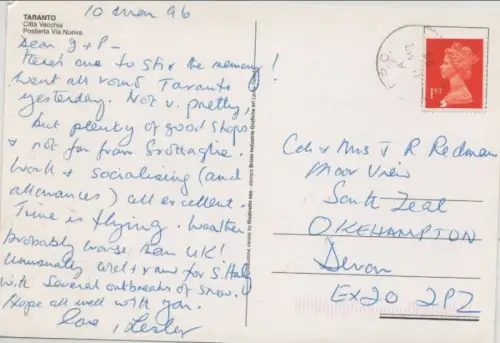 10 Mar 96
TARANTO
Città Vecchia
Postierla Via Nuova
Dear J & P -
Here's one to stir the memory!
Went all round Taranto
yesterday. Not v. pretty,
but plenty of good shops
& not far from Grottaglie.
Work & socialising (and
allowances) all excellent.
Time is flying. Weather
probably worse than UK!
Unusually wet & raw for S. Italy
with several outbreaks of snow.
Hope all well with you.
Love, Lester
1ST
Col & Mrs J R Redman
Moor View
South Zeal
OKEHAMPTON
Devon
EX20 2PZ